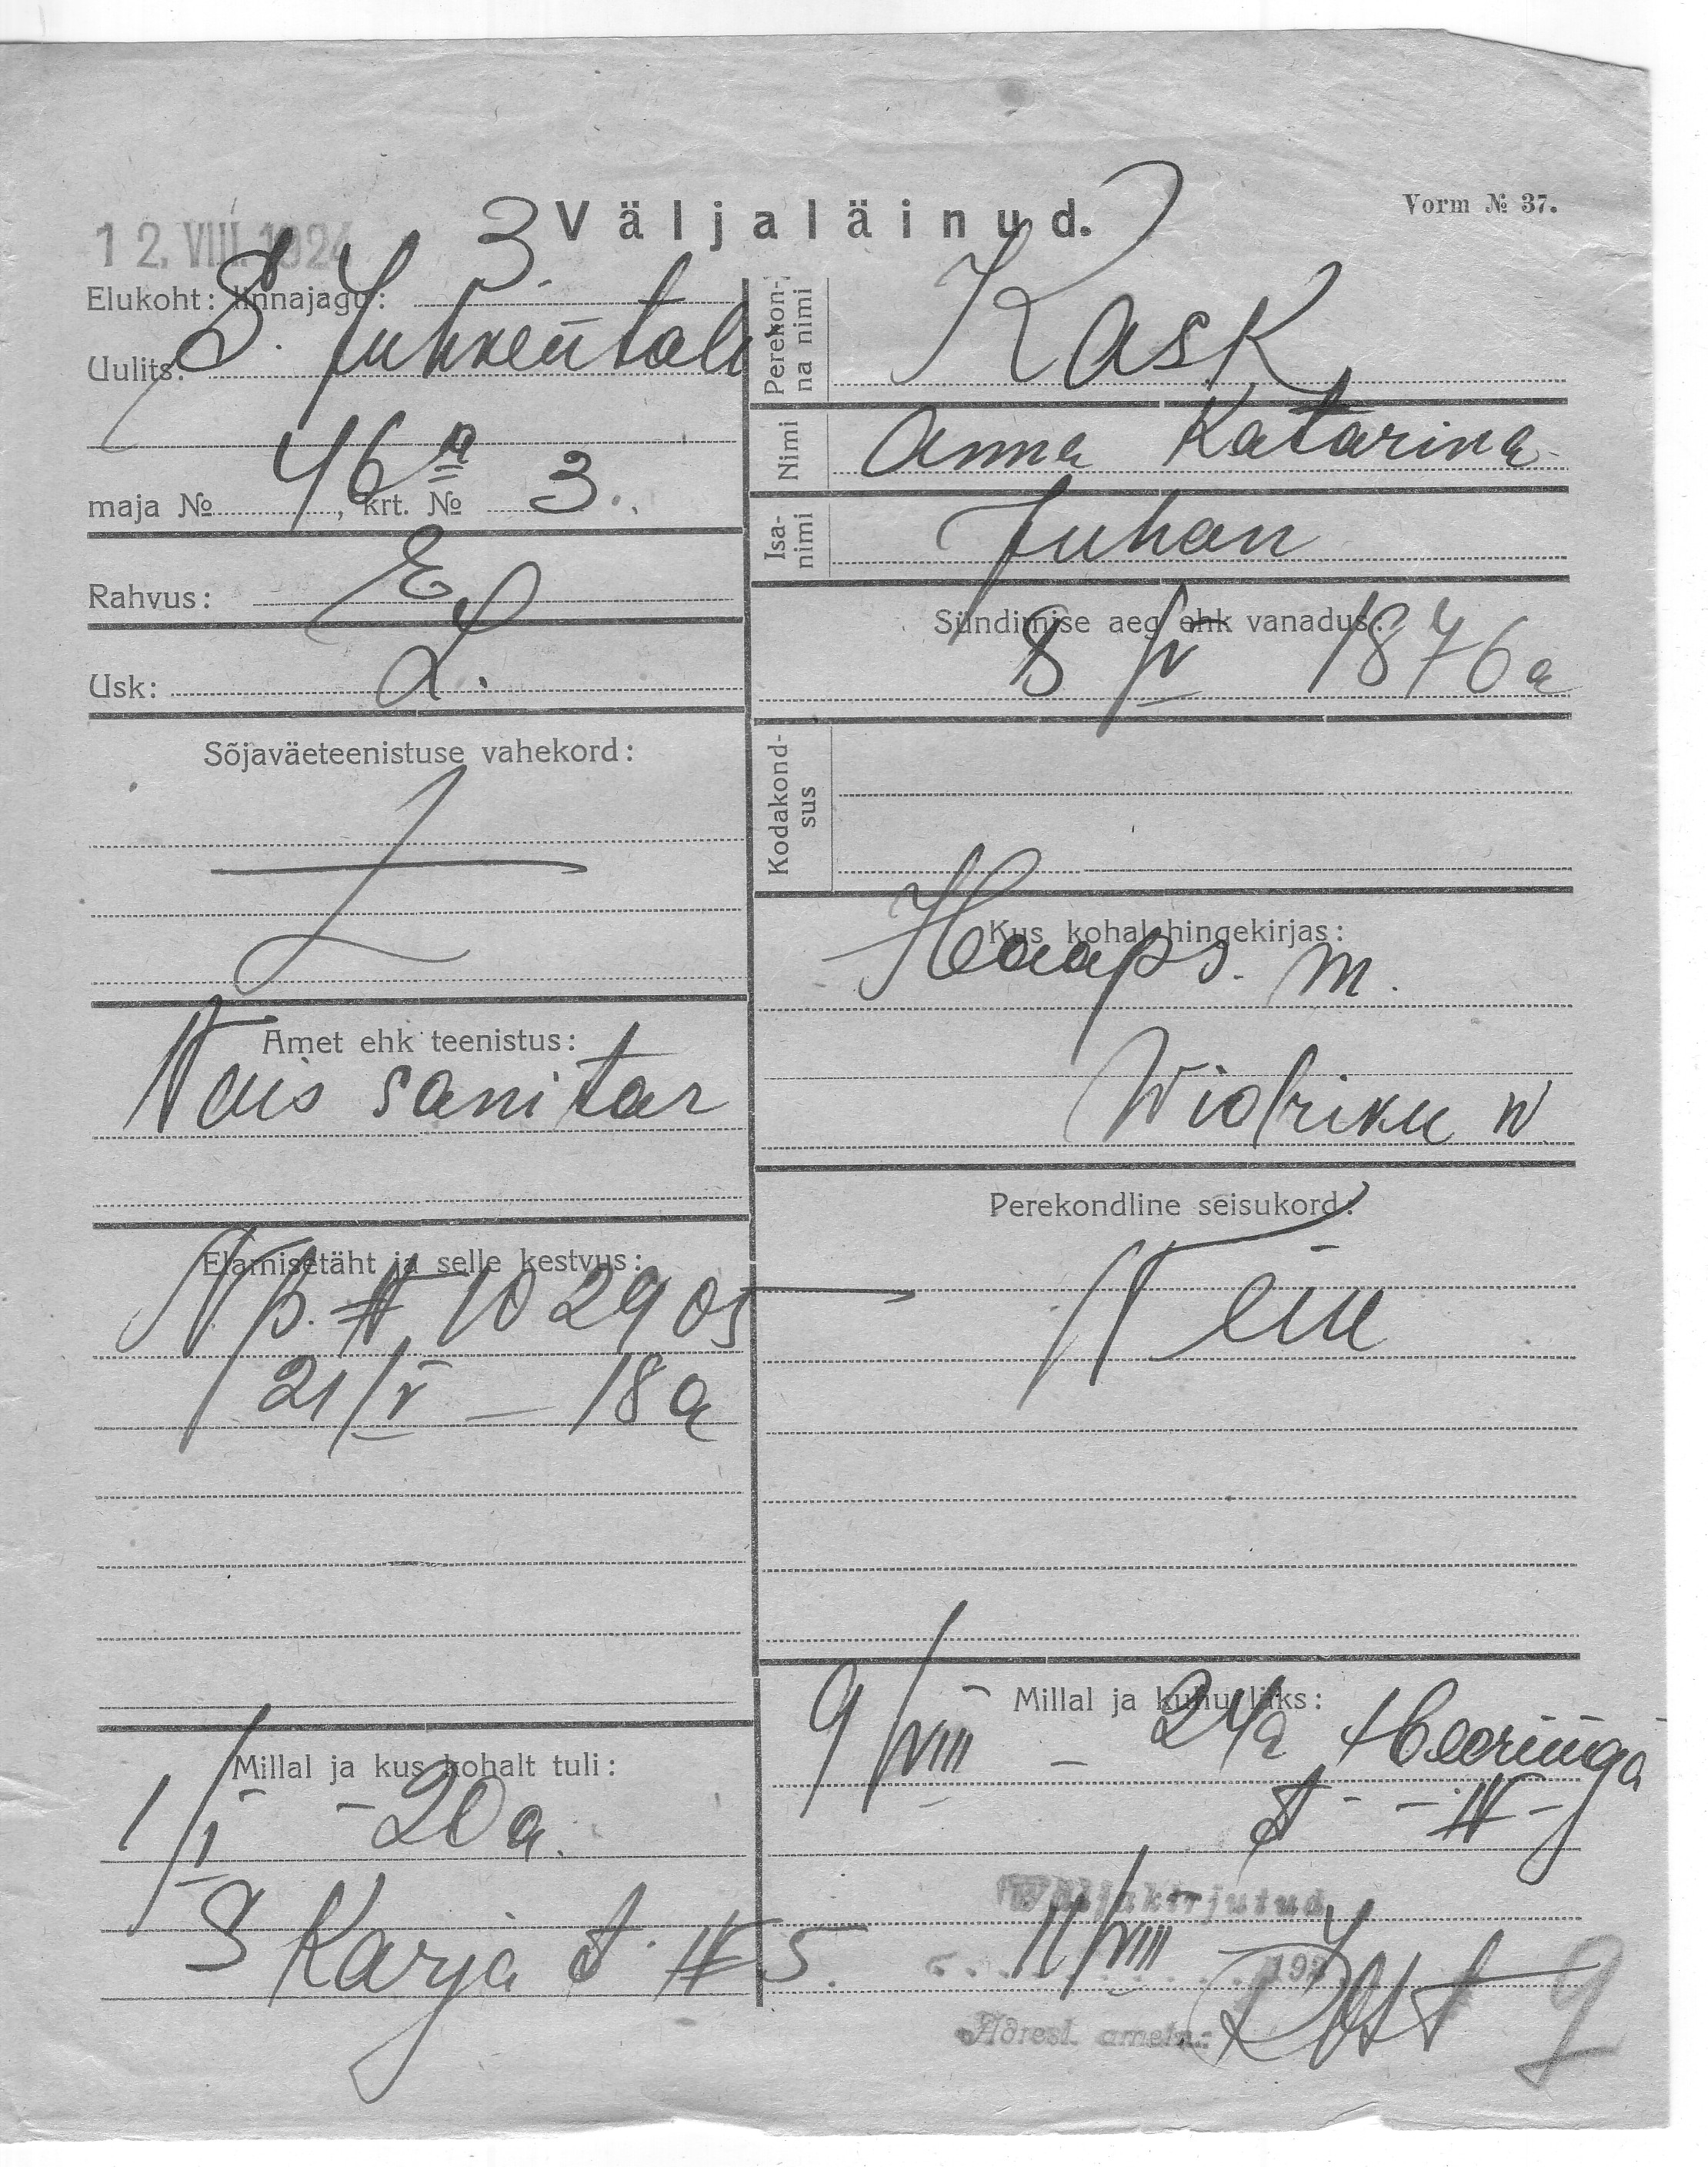 Vorm № 37.
12. VIII. 1924
3 Väljaläinud.
Elukoht: linnajagu: 3.
Uulits: S. Juhkentali
maja № 46 a, krt. № 3.
Rahvus: E
Usk: L.
Sõjaväeteenistuse vahekord:
Amet ehk teenistus:
Nais sanitar
Elamisetäht ja selle kestvus:
N p. № 102905
21/V – 18 a
Millal ja kus kohalt tuli:
1/I – 20 a.
S Karja t. № 5.
Perekonna nimi
Kask
Nimi
Anna Katarina
Isanimi
Juhan
Sündimise aeg ehk vanadus:
8 IV 1876 a
Kodakondsus
Kus kohal hingekirjas:
Haaps. m.
Widriku w
Perekondline seisukord:
Neiu
Millal ja kuhu läks:
9/VIII – 24 a Heeringa
t - - № -
Väljakirjutud
11/VIII 192
Adresl. ametn.:
9